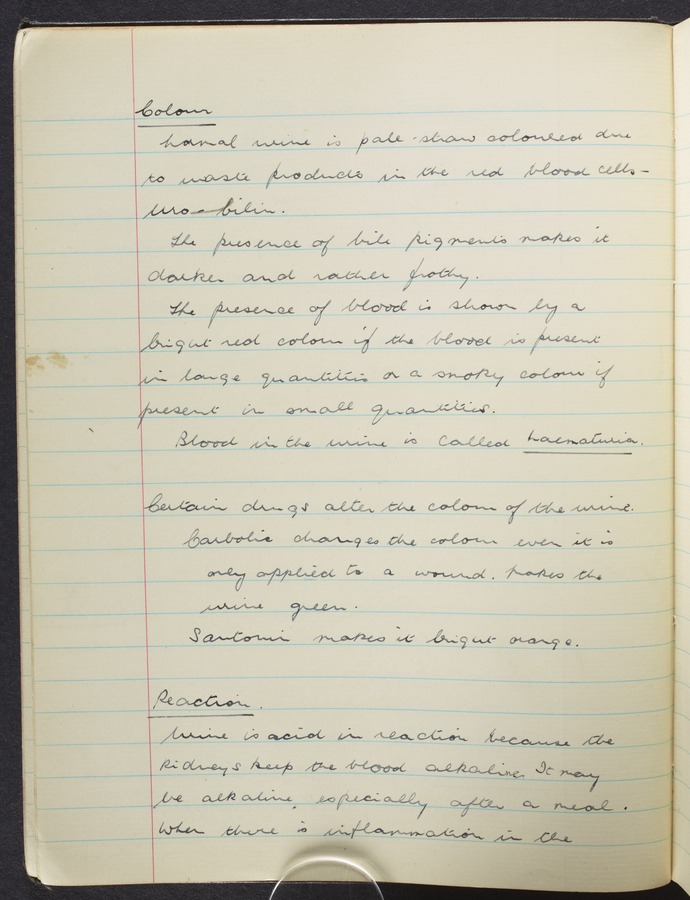 Colour
Normal urine is pale-straw coloured due
to waste products in the red blood cells-
Uro-bilin.
The presence of bile pigments makes it
darker and rather frothy.
The presence of blood is shown by a
bright red colour if the blood is present
in large quantities or a smoky colour if
present in small quantities.
Blood in the urine is called haematuria.
Certain drugs alter the colour of the urine.
Carbolic changes the colour even it is
only applied to a wound. Makes the
urine green.
Santonin makes it bright orange.
Reaction.
Urine is acid in reaction because the
kidneys keep the blood alkaline. It may
be alkaline, especially after a meal.
When there is inflammation in the